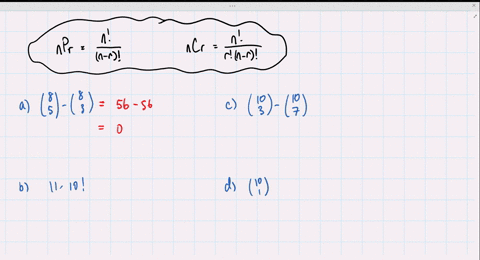 nPr = n!/(n-r)!    nCr = n!/r!(n-r)!
a) (8 5) - (8 3) = 56 - 56
= 0
c) (10 3) - (10 7)
b) 11 · 10!
d) (10 1)